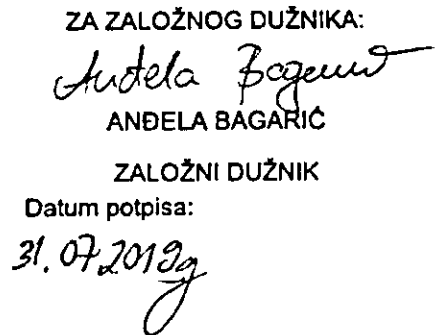 ZA ZALOŽNOG DUŽNIKA:
Anđela Bagarić
ANĐELA BAGARIĆ
ZALOŽNI DUŽNIK
Datum potpisa:
31.07.2019g